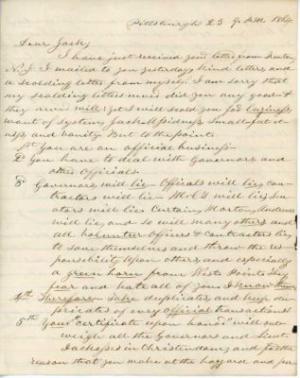 Pittsburgh 23 1864
Dear Jack,
I have just received your letter from Trenton
N.J. I mailed to you yesterday kind letters and
a scolding letter from myself. I am sorry that
my scolding letters never did you any good &
they never will yet I will scold you for Laziness
want of System,
and vanity But to the point.
1st You are on official business
2 You have to deal with Governors and
other Officials
3 Governors will lie Officials will lie, con-
tractors will lie M.C.s will lie, Sen
ators will lie
will lie and so will many others and
all volunteer officers & contractors lie,
to save themselves and throw the re-
sponsibility upon others and especially
a green horn from West Point They
fear and hate all of you I know them
4th Therefore Take duplicates and keep du-
plicates of every official transaction
5th Your certificate upon honor will out
weigh all the Governors and Lieut
in Christendom, and for the
reason that you make at the hazzard and